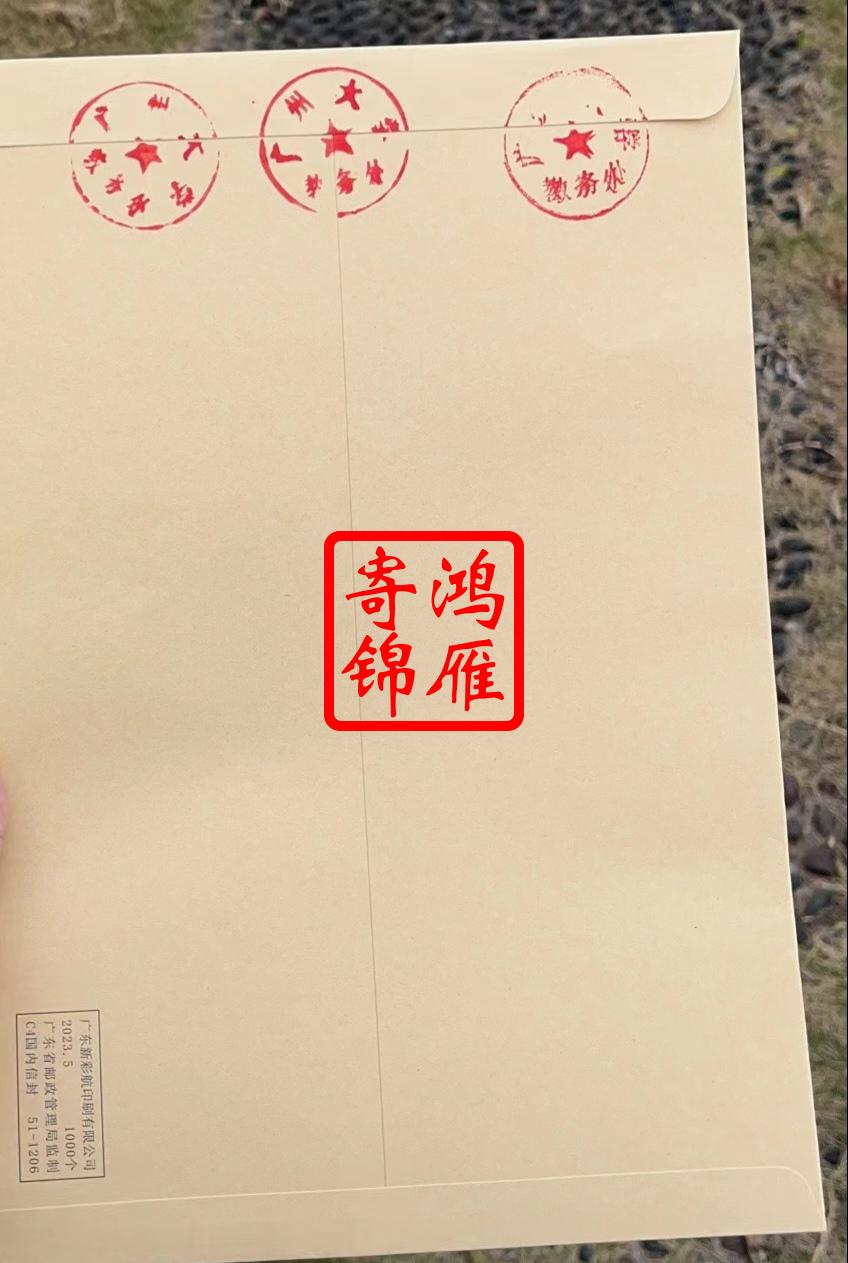 广州大学
教务处
广州大学
教务处
教务处
鸿雁
寄锦
广东新彩航印刷有限公司
2023.5 1000个
广东省邮政管理局监制
C4国内信封 51-1206